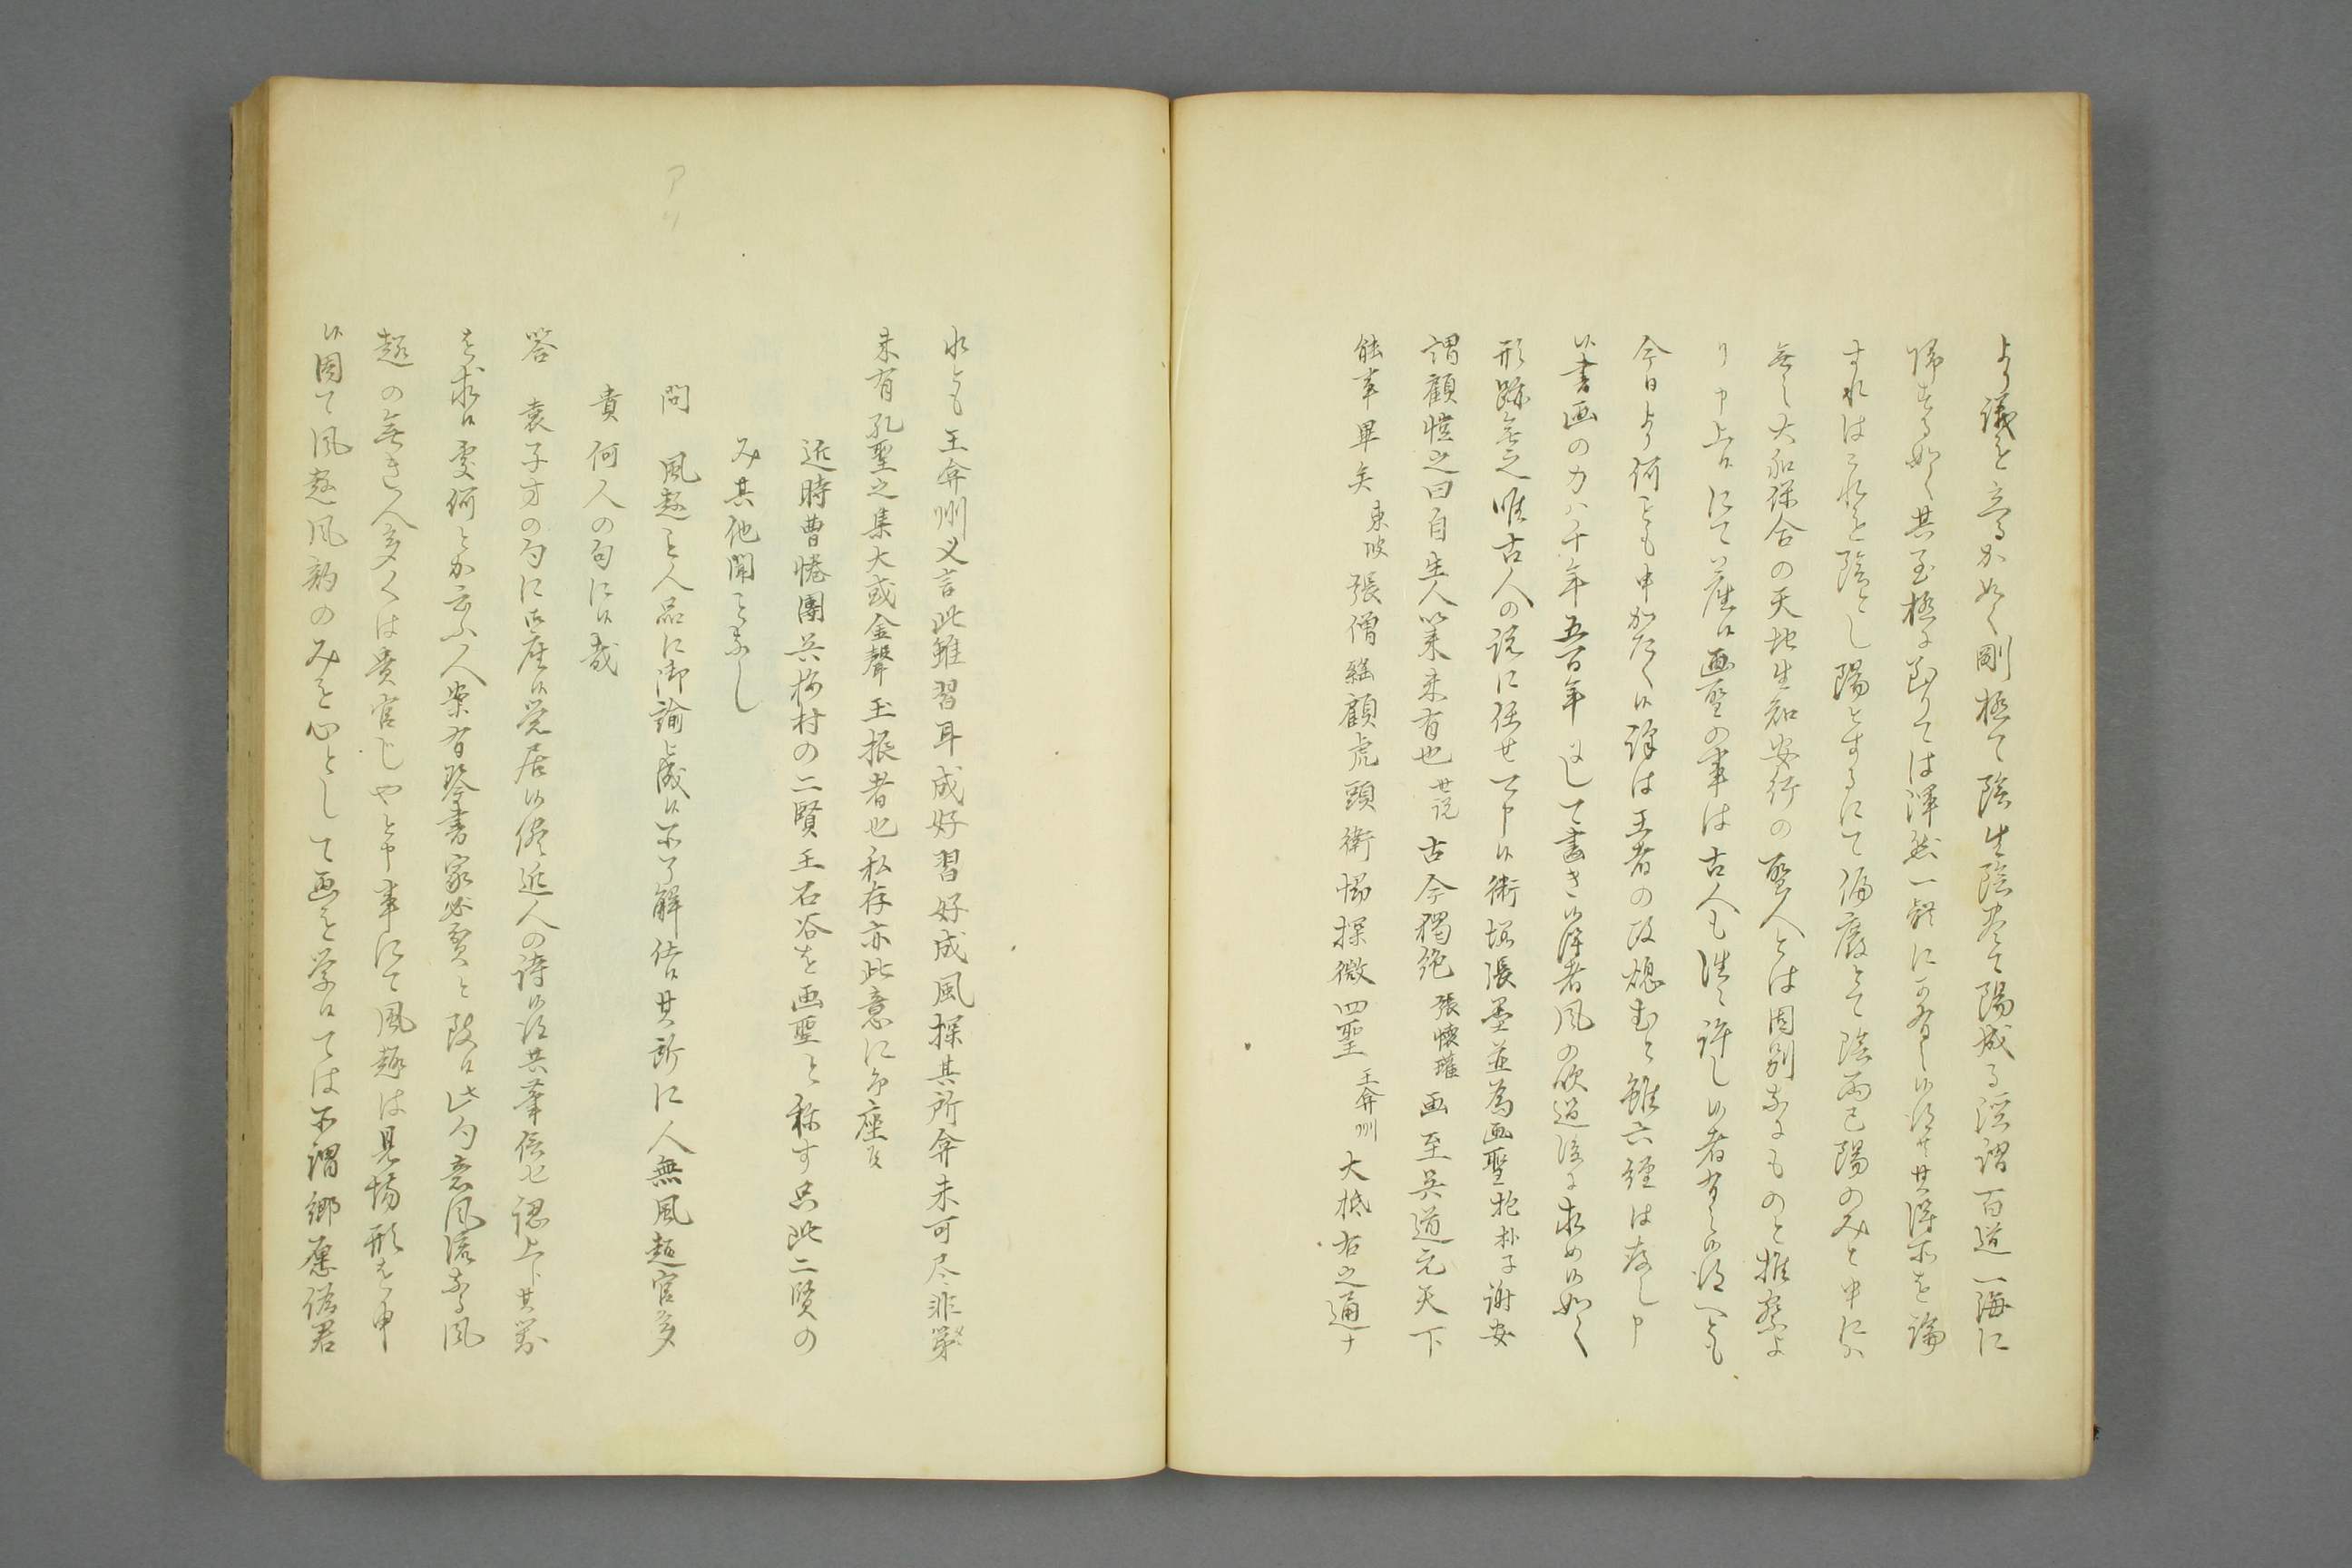 より議を立るかぬく剛極て陰生陰尽て陽成る淫謂百道一海に
帰する如く其至極に到りては渾然一躰に可有之候得共其得不を論
すれはこれを陰とし陽とするにて偏廢とて陰而已陽のみと申にハ
無之大和保合の天地生知安行の聖人とは固別なるものと推察よ
り申上候にて御座候画聖の事は古人も往々許し候者有之候得へとも
今日より何とも申かたく候詩は王者の改熄むと雖六經は存し申
候書画の力ハ千年五百年にして尽き候得者風の欲道後に求め候如く
形跡無之唯古人の説に任せ可申候衛協張墨並為画聖抱朴子謝安
謂顧愷之曰自生人以来未有也世説古今獨絶張懐瓘画至呉道元天下
能事畢矣東坡張僧繇顧虎頭衛協探微四聖王弇州大抵右之通ナ
アリ
れとも王弇州又言此雖習耳成好習好成風探其所弇未可尽非第
未有孔聖之集大或金聲玉振者也私存亦此意に御座候
近時曹惓圃呉梅村の二賢王石谷を画聖と称す只此二賢の
み其他聞ことなし
問　風趣と人品に御諭之處候不了解佶其所に人無風趣官多
貴何人の句に候哉
答　袁子才の句に御座候覚居候儘近人の詩候得共筆信も認上申其対
を求候處何とか云ふ人案有琴書家必賓と改候此句意風流なる風
趣の無き人多くは貴官じやと申事にて風趣は見場形を申
候固て風趣風韵のみを心として画を学候ては不謂郷愿偽君